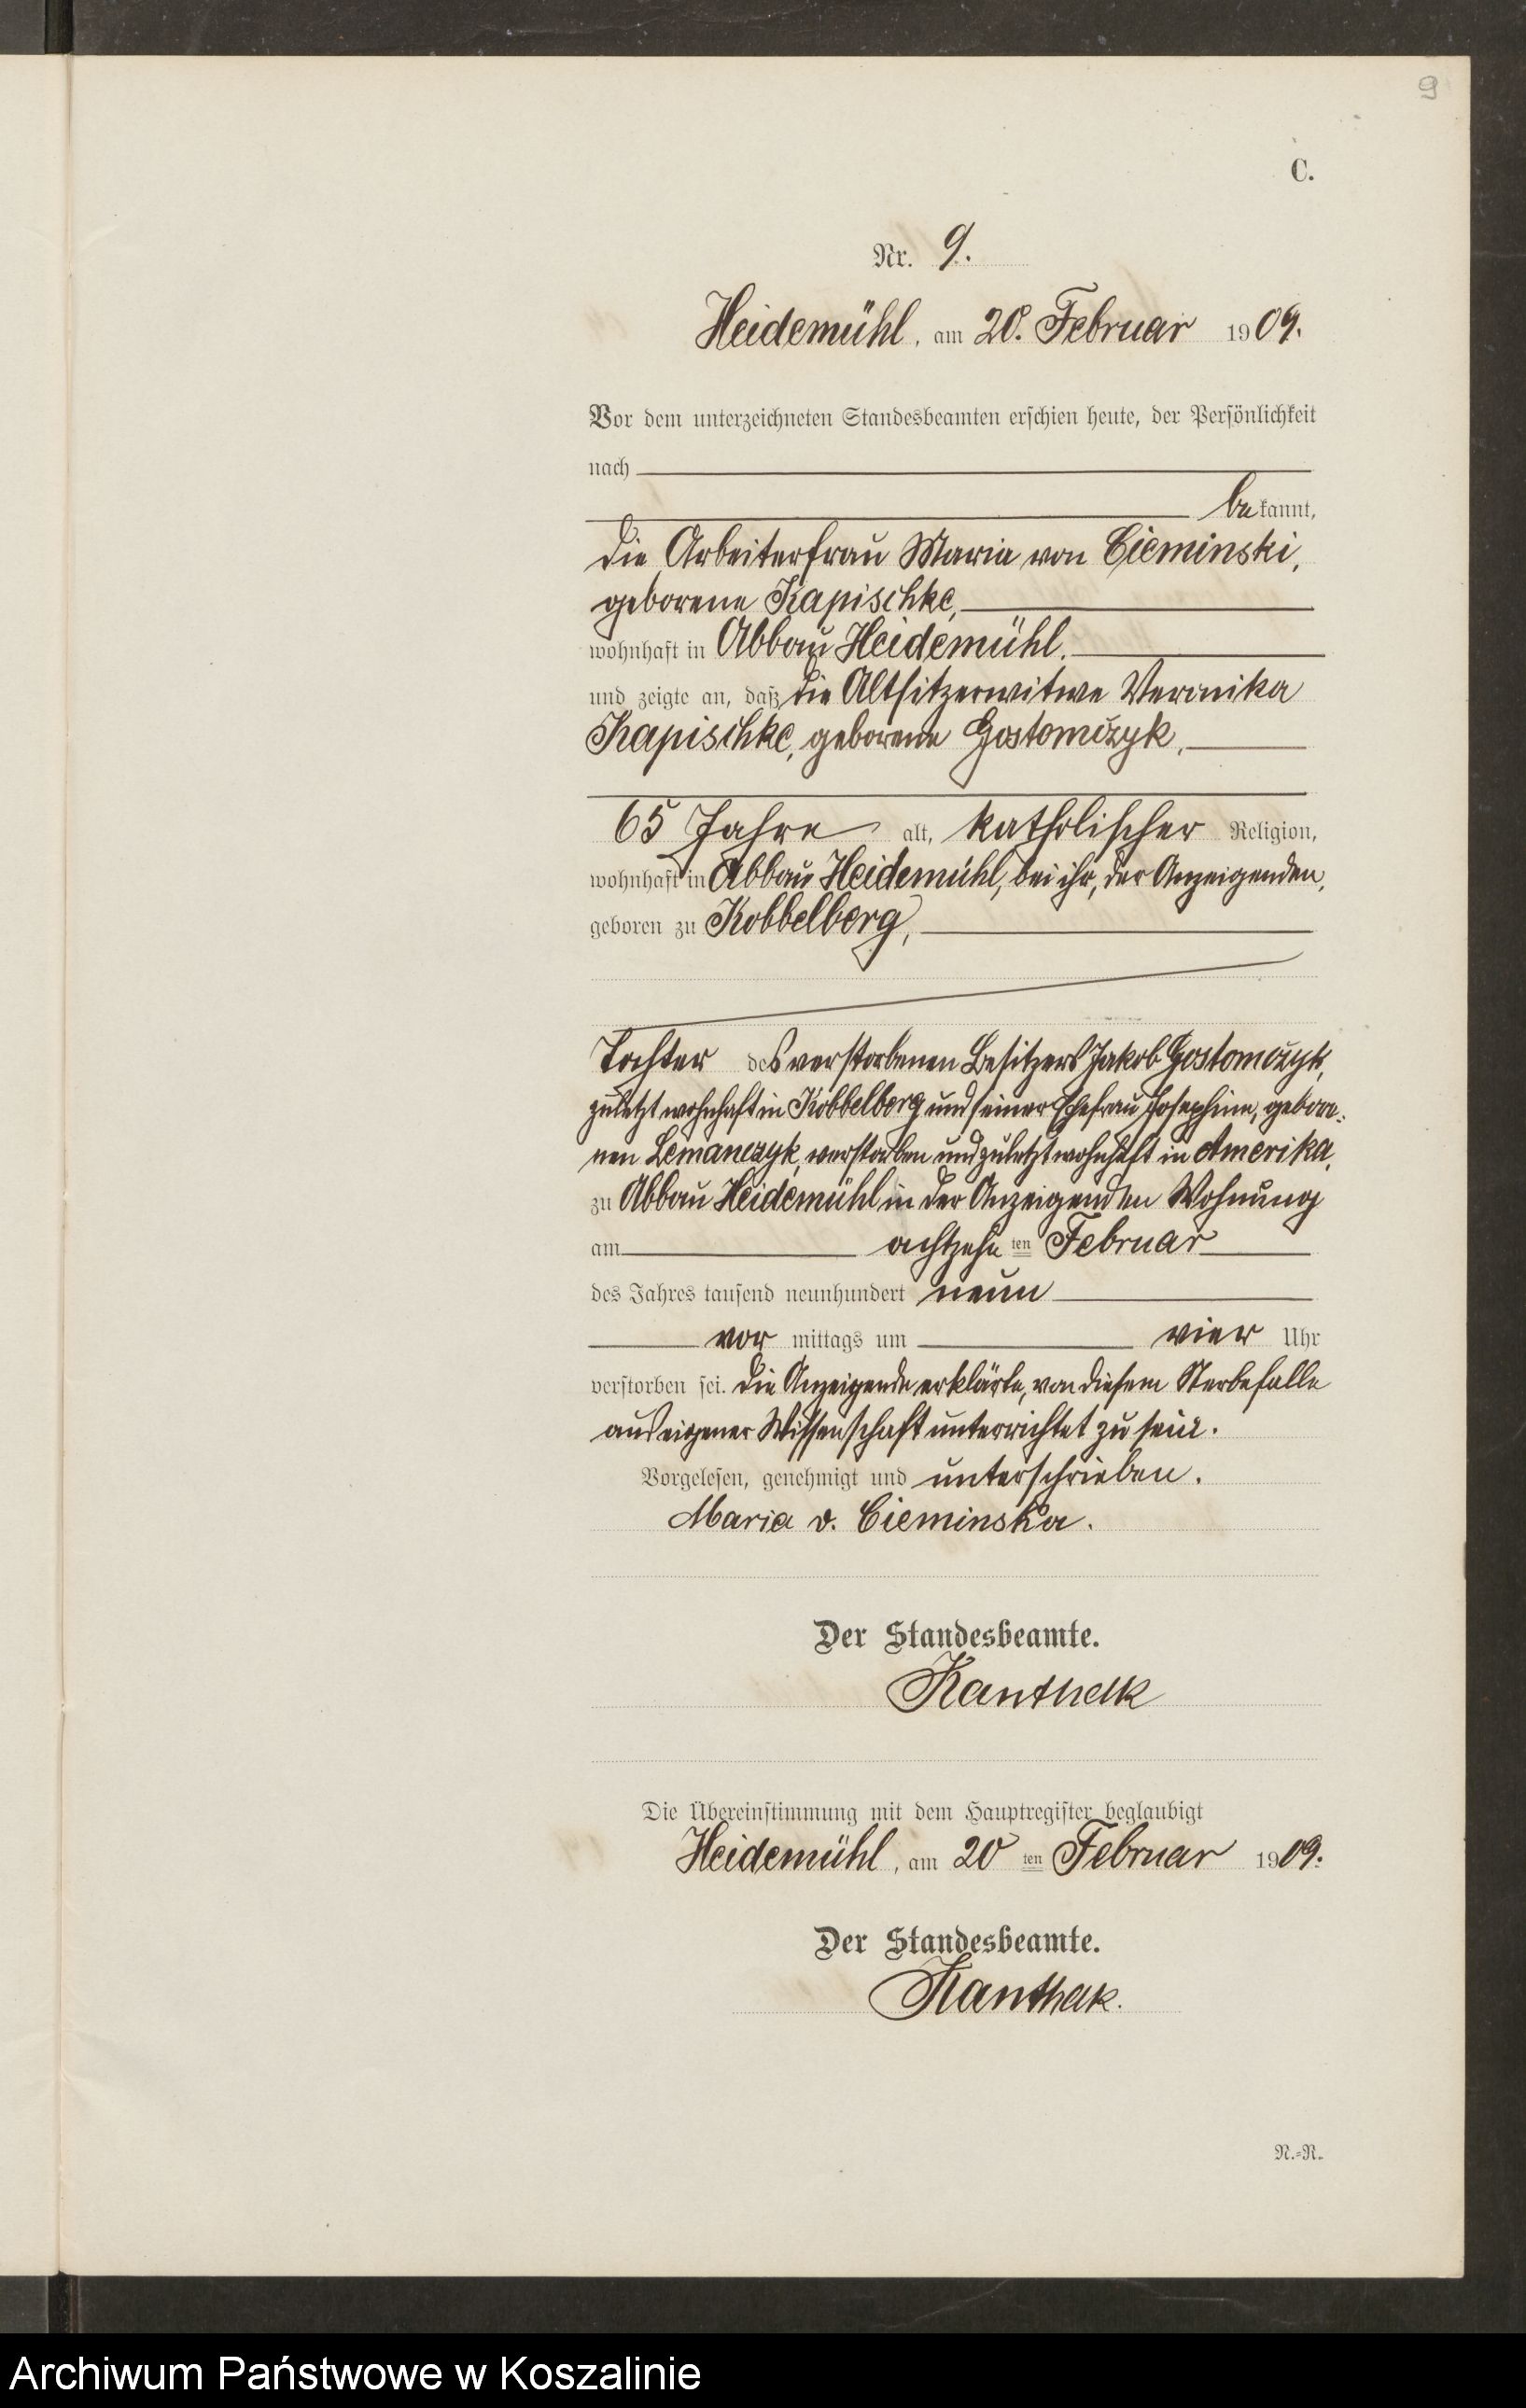 9
C.
Nr. 9.
Heidemühl, am 20. Februar 1909.
Vor dem unterzeichneten Standesbeamten erschien heute, der Persönlichkeit
nach
bekannt,
die Arbeiterfrau Maria von Cieminski,
geborene Kapischke,
wohnhaft in Abbau Heidemühl.
und zeigte an, daß die Altsitzerwitwe Veronika
Kapischke, geborene Gostomczyk,
65 Jahre alt, katholischer Religion,
wohnhaft in Abbau Heidemühl, bei ihr, der Anzeigenden,
geboren zu Kobbelberg,
Tochter des verstorbenen Besitzers Jakob Gostomczyk,
zuletzt wohnhaft in Kobbelberg und seiner Ehefrau Josephine, gebore-
nen Lemanczyk, verstorben und zuletzt wohnhaft in Amerika,
zu Abbau Heidemühl in der Anzeigenden Wohnung
am achtzehnten Februar
des Jahres tausend neunhundert neun
vor mittags um vier Uhr
verstorben sei. Die Anzeigende erklärte, von diesem Sterbefalle
aus eigener Wissenschaft unterrichtet zu sein.
Vorgelesen, genehmigt und unterschrieben.
Maria v. Cieminska.
Der Standesbeamte.
Kanthak
Die Übereinstimmung mit dem Hauptregister beglaubigt
Heidemühl, am 20ten Februar 1909.
Der Standesbeamte.
Kanthak.
N.=R.
Archiwum Państwowe w Koszalinie